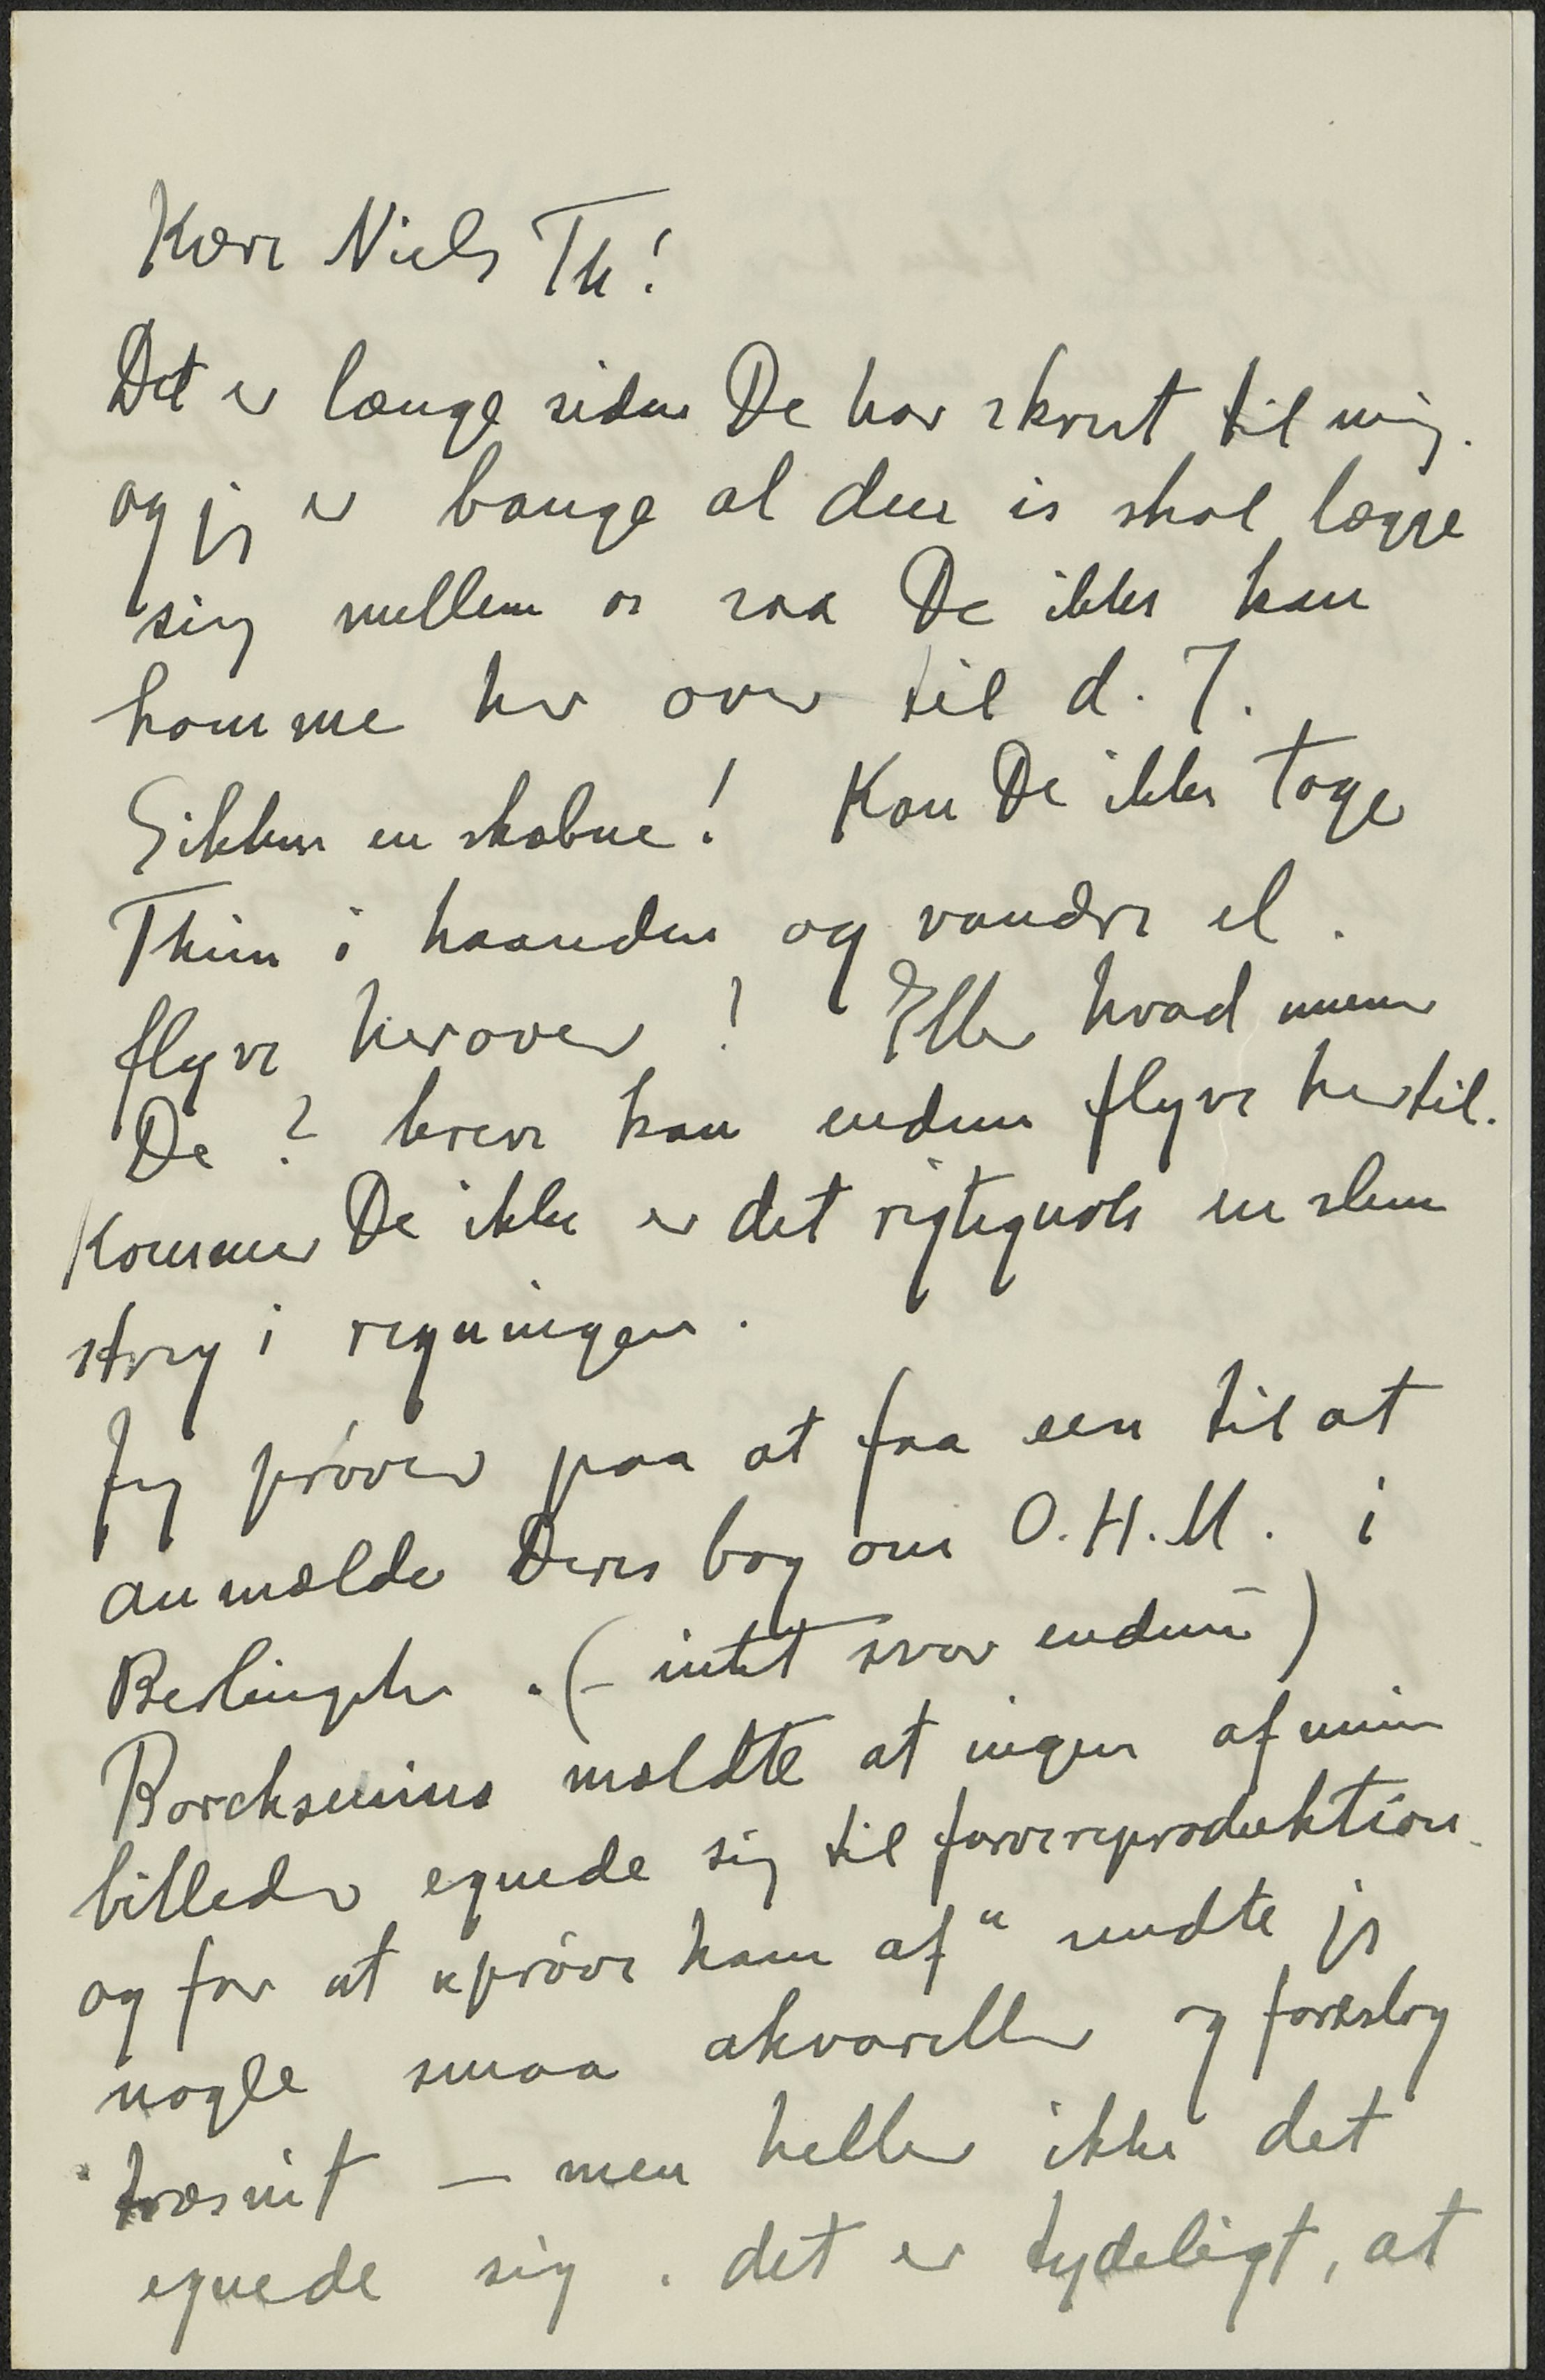 Kære Niels Th!
Det er længe siden De har skrevet til mig.
og jeg er bange al den is skal lægge
sig mellem os saa De ikke kan
komme her over til d. 7.
Sikken en skæbne! Kan De ikke tage
Thim i haanden og vandre el.
flyve herover! Eller hvad mener
De? breve kan endnu flyve hertil.
Kommer De ikke er det rigtignok en slem
streg i regningen.
Jeg prøver paa at faa een til at
anmælde Deres bog om O.H.M. i
Berlingske. (- intet svar endnu)
Borchsenius mældte at ingen af mine
billeder egnede sig til farvereproduktion
og for at "prøve ham af" sendte jeg
nogle smaa akvareller og foreslog
træsnit – men heller ikke det
egnede sig. det er tydeligt, at